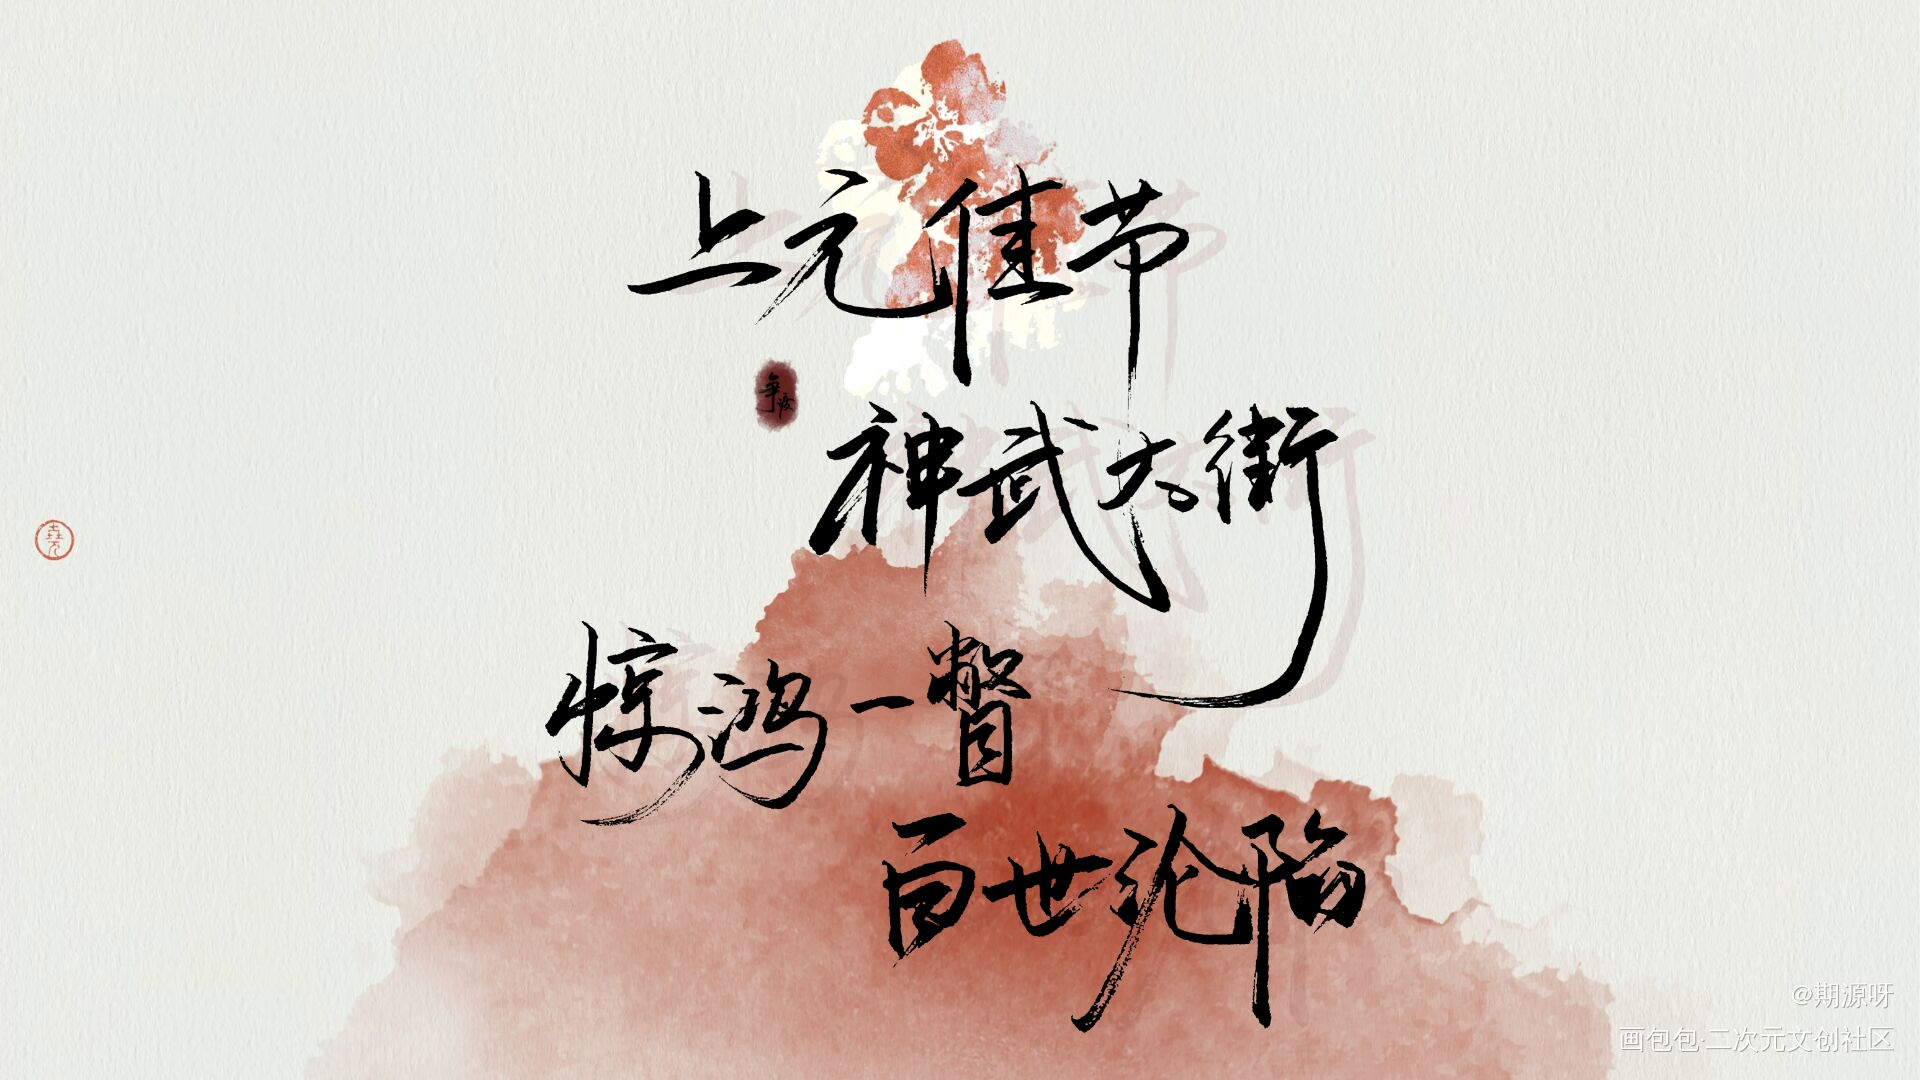 上元佳节
神武大街
惊鸿一瞥
百世沦陷
@期源呀
画包包·二次元文创社区